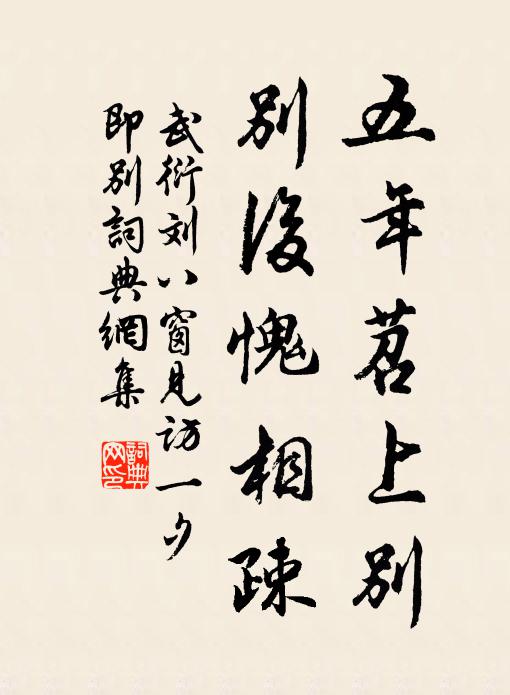 五年苕上别
别後愧相疎
武衍刘八窗見访一夕
即别詞典網集
詞典网印